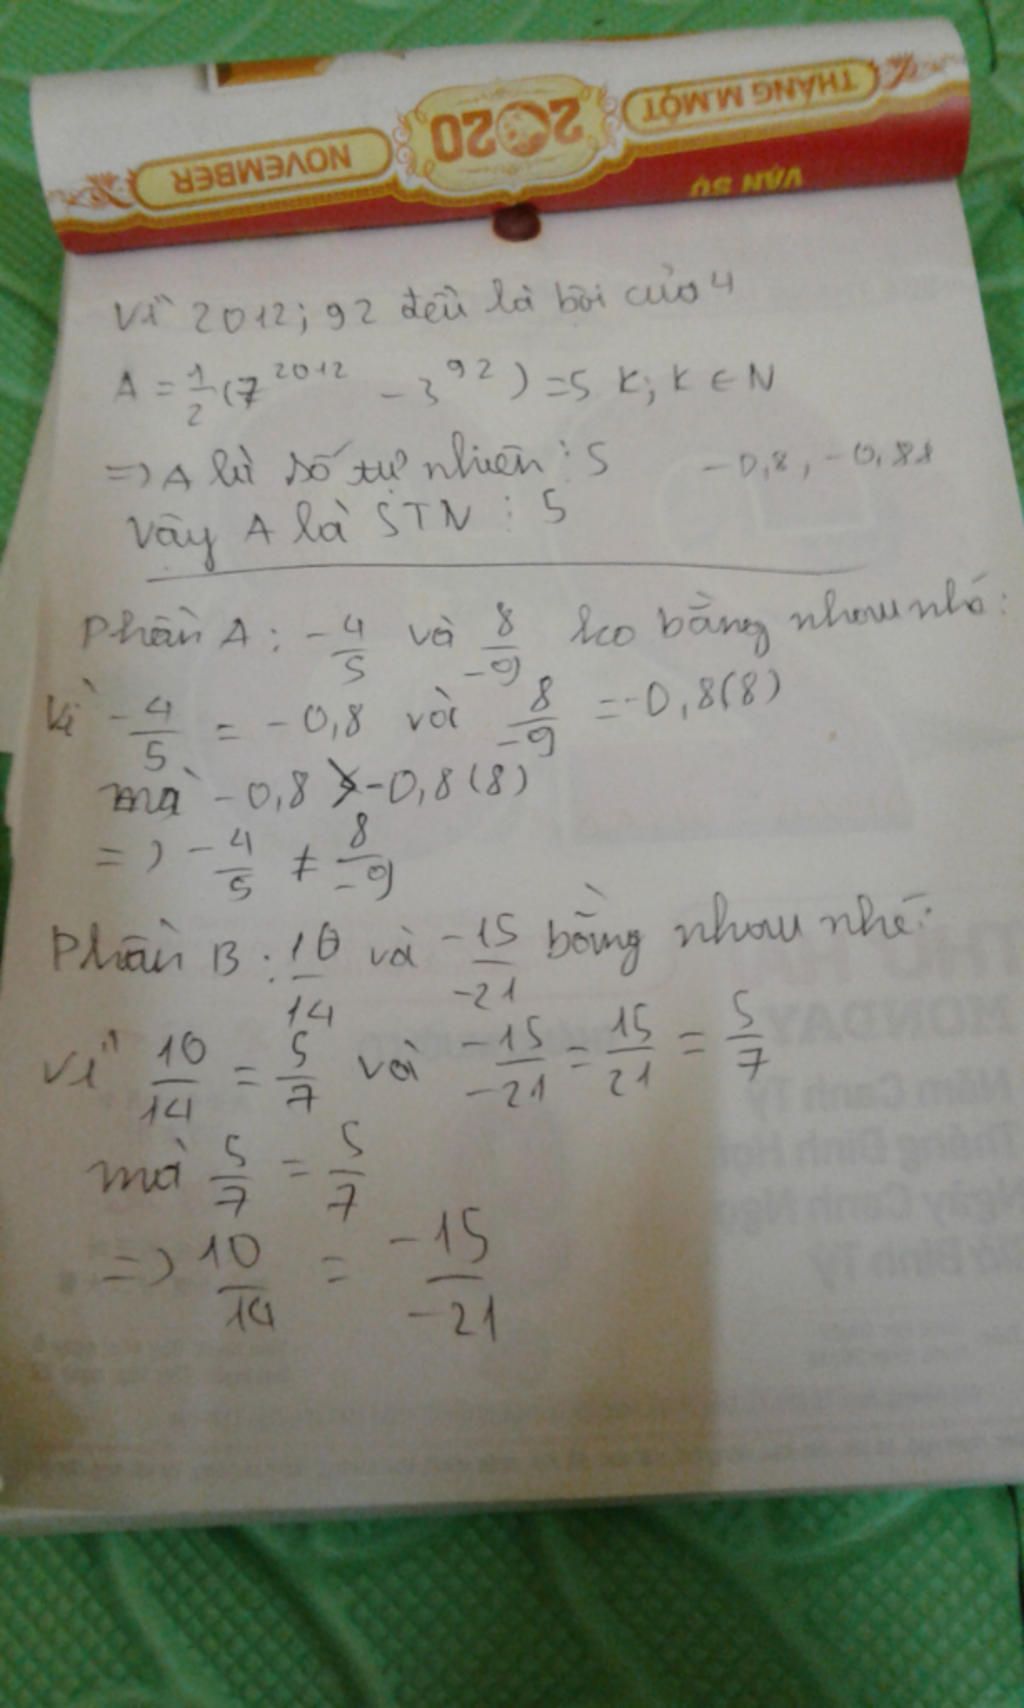 VẠN SỰ
THÁNG M.MỘT 2020 NOVEMBER
Vì 2012; 92 đều là bội của 4
A = 1/2 (7^2012 - 3^92) = 5 K; K ∈ N
=> A là số tự nhiên ⋮ 5 -0,8, -0,88
Vậy A là STN ⋮ 5
Phần A: -4/5 và 8/-9 ko bằng nhau nhé:
Vì -4/5 = -0,8 và 8/-9 = -0,8(8)
mà -0,8 > -0,8(8)
=> -4/5 ≠ 8/-9
Phần B: 10/14 và -15/-21 bằng nhau nhé:
Vì 10/14 = 5/7 và -15/-21 = 15/21 = 5/7
mà 5/7 = 5/7
=> 10/14 = -15/-21
MONDAY
Năm Canh Tý
Tháng Đinh Hợi
Ngày Canh Ngọ
Giờ Bính Tý